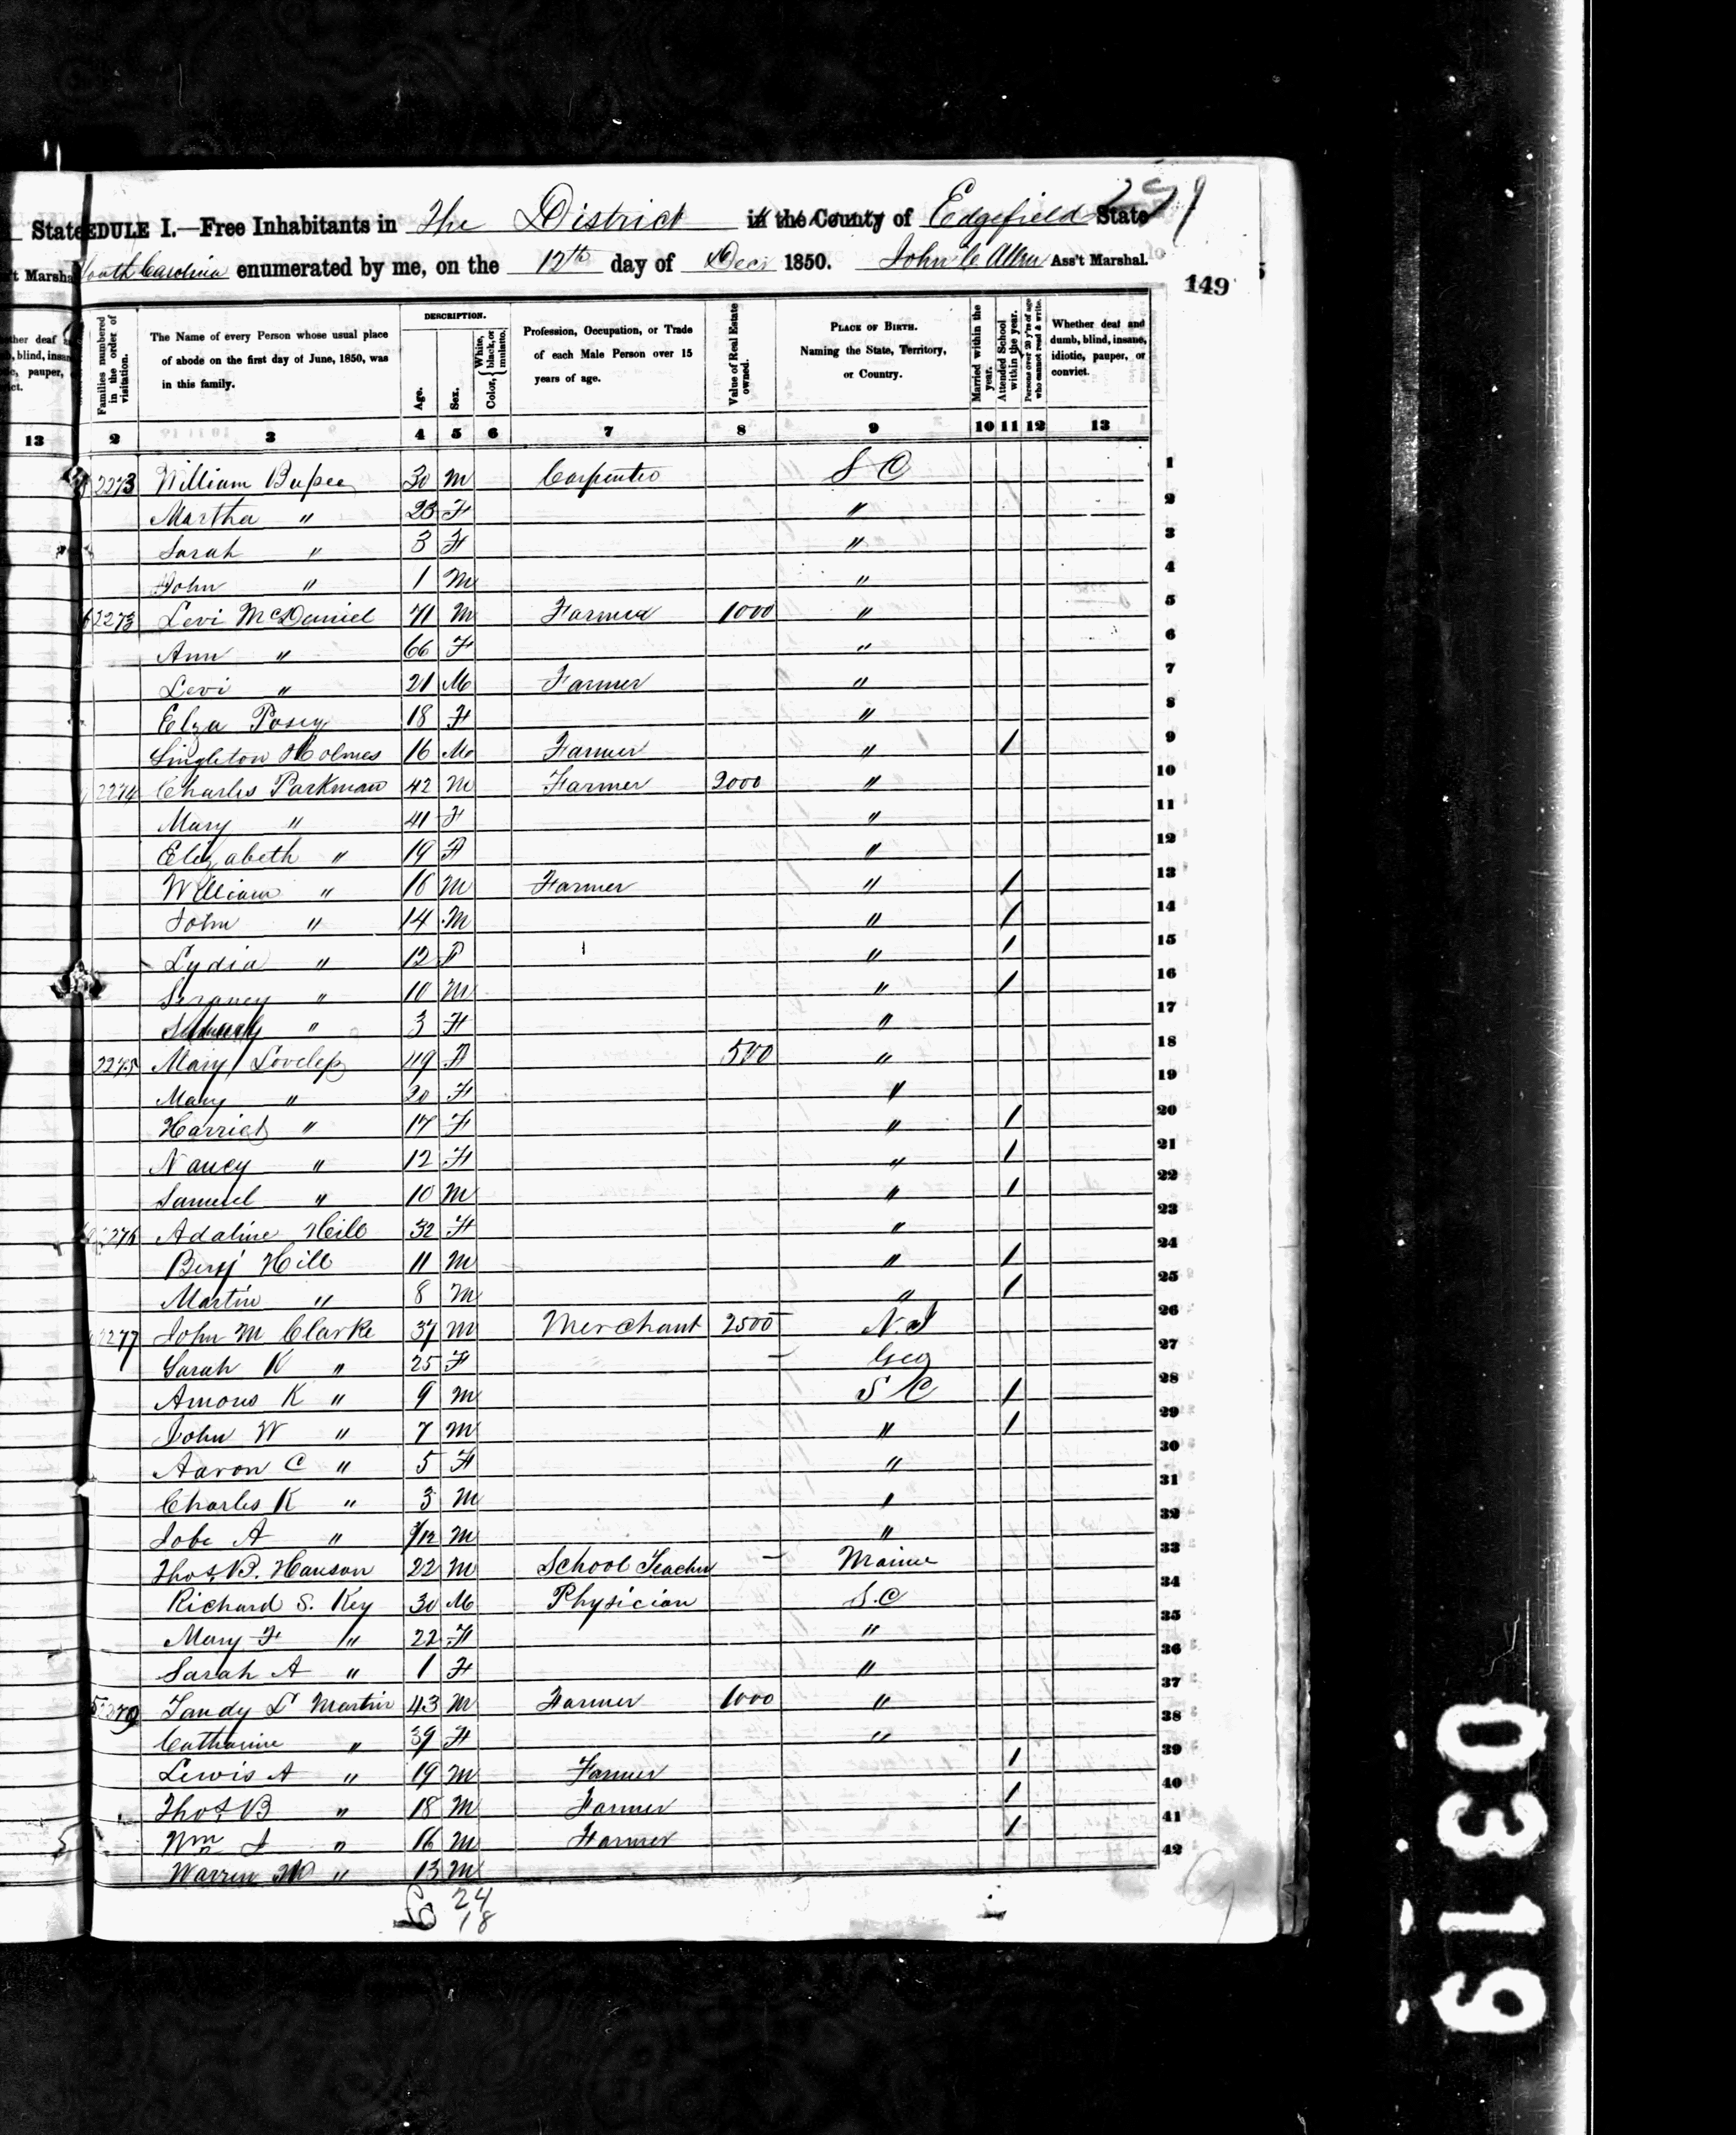 State
EDULE I.—Free Inhabitants in The District in the County of Edgefield State
't Marsha South Carolina enumerated by me, on the 12th day of Dec 1850. John C Allen Ass't Marshal.
149
Families numbered in the order of visitation.
The Name of every Person whose usual place of abode on the first day of June, 1850, was in this family.
DESCRIPTION.
Age.
Sex.
Color, White, black, or mulatto.
Profession, Occupation, or Trade of each Male Person over 15 years of age.
Value of Real Estate owned.
PLACE OF BIRTH. Naming the State, Territory, or Country.
Married within the year.
Attended School within the year.
Persons over 20 y'rs of age who cannot read & write.
Whether deaf and dumb, blind, insane, idiotic, pauper, or convict.
13 2 3 4 5 6 7 8 9 10 11 12 13
2273 William 30 M Carpenter S C 1
Martha " 23 F " 2
Sarah " 3 F " 3
John " 1 M " 4
2273 Levi McDaniel 71 M Farmer 1000 " 5
Ann " 66 F " 6
Levi " 21 M Farmer " 7
Elza Posey 18 F " 8
Singleton Holmes 16 M Farmer " / 9
2274 Charles Parkman 42 M Farmer 2000 " 10
Mary " 41 F " 11
Elizabeth " 19 F " 12
William " 16 M Farmer " / 13
John " 14 M " / 14
Lydia " 12 F " / 15
" 10 M " / 16
" 3 F " 17
2275 Mary Loveless 49 F 500 " 18
Mary " 20 F " 19
Harriet " 17 F " / 20
Nancy " 12 F " / 21
Samuel " 10 M " / 22
2276 Adaline Hill 32 F " 23
Benj Hill 11 M " / 24
Martin " 8 M " / 25
2277 John M Clarke 37 M Merchant 2500 N. J 26
Sarah K " 25 F Geo 27
Amous K " 9 M S C / 28
John W " 7 M " / 29
Aaron C " 5 F " 30
Charles K " 3 M " 31
Jobe A " /12 M " 32
Thos. B. Hanson 22 M School Teacher Maine 33
Richard S. Key 30 M Physician S. C 34
Mary F " 22 F " 35
Sarah A " 1 F " 36
Tandy L Martin 43 M Farmer 1000 " 37
Catharine " 39 F " 38
Lewis A " 19 M Farmer / 39
Thos B " 18 M Farmer / 40
Wm J " 16 M Farmer / 41
Warren " 13 M 42
6 24
18
0319